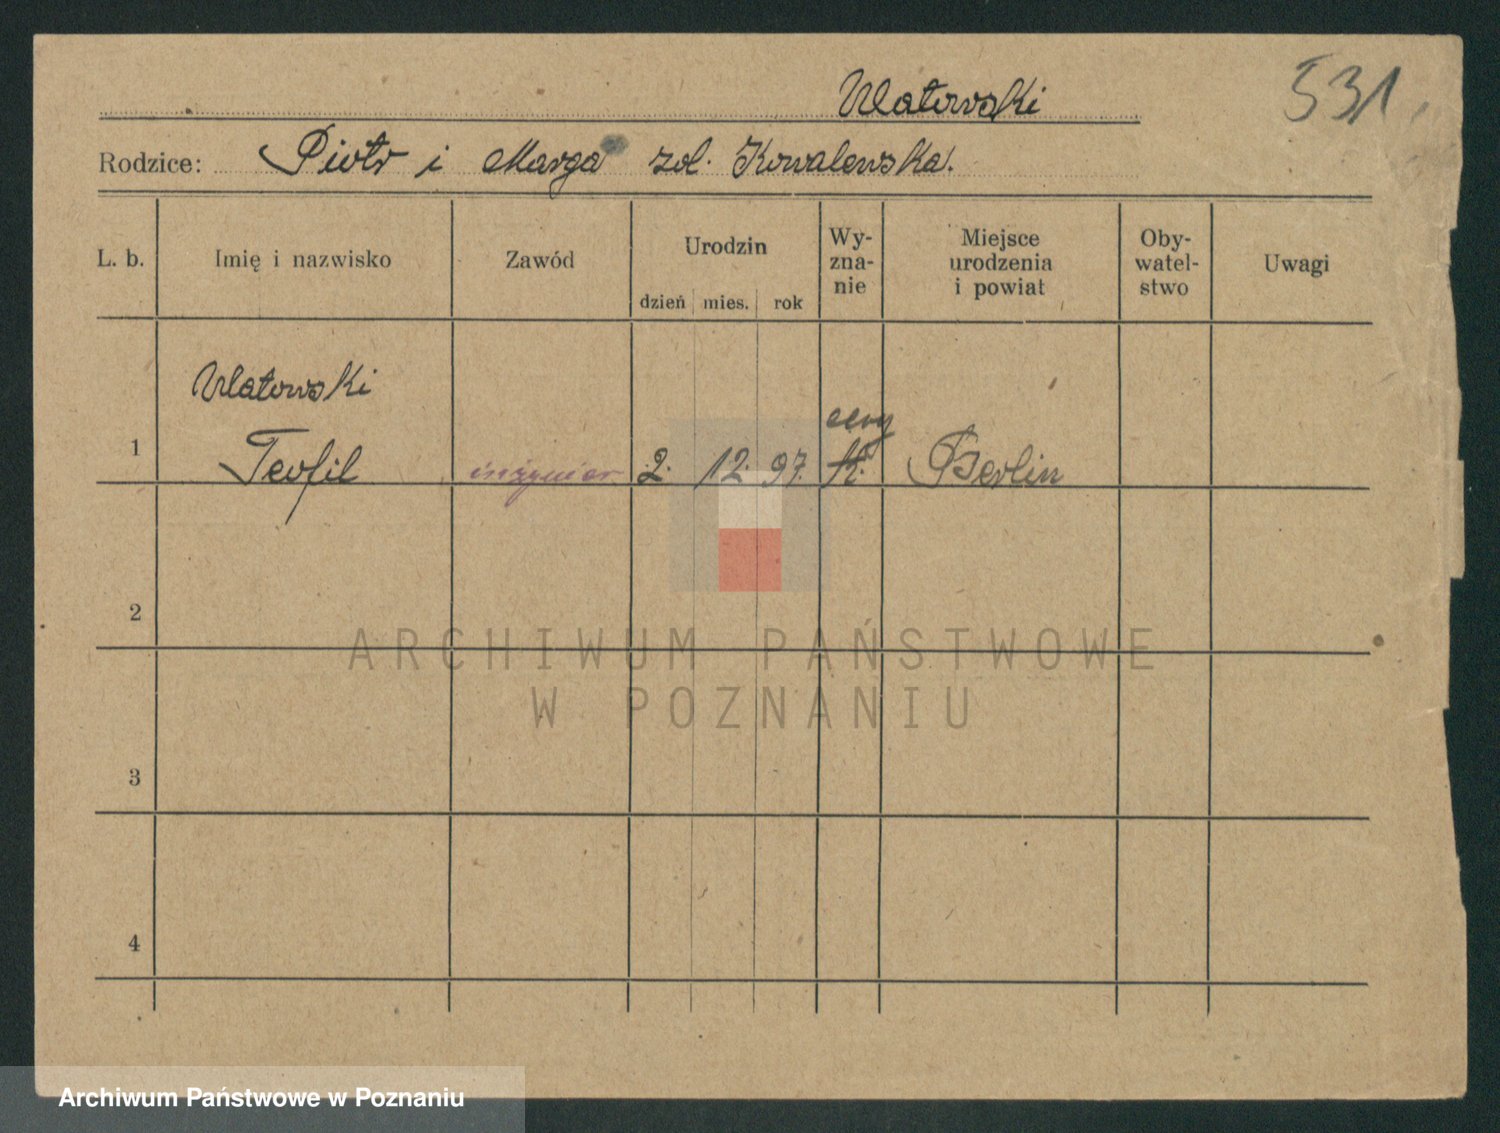 Ulatowski
531
Rodzice: Piotr i Marga zol. Kowalewska.
L. b. Imię i nazwisko Zawód Urodzin dzień mies. rok Wy-zna-nie Miejsce urodzenia i powiat Oby-watel-stwo Uwagi
Ulatowski
1 Teofil inżynier 2. 12. 97. K. Berlin
2
3
4
ARCHIWUM PAŃSTWOWE
W POZNANIU
Archiwum Państwowe w Poznaniu